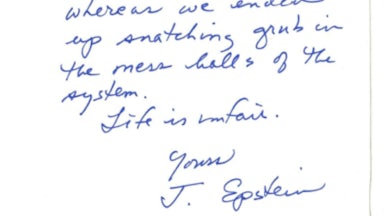 whereas we ended
up snatching grub in
the mess halls of the
system.
Life is unfair.
Yours
J. Epstein